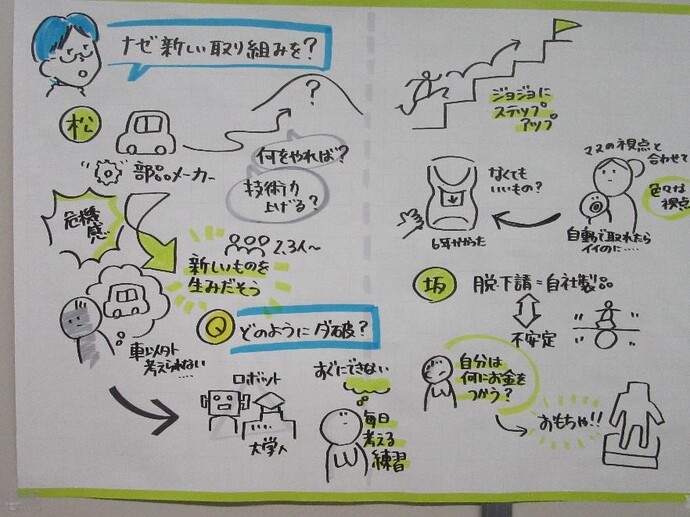 ナゼ新しい取り組みを?
松
部品メーカー
?
何をやれば?
技術力
上げる?
危機
感
2,3人〜
新しいものを
生みだそう
車以外
考えられない
……
Q
どのようにダ破?
ロボット
大学へ
すぐにできない
毎日
考える
練習
ジョジョに
ステップ
アップ
なくても
いいもの?
6年かかった
ママの視点と
合わせて
色々な
視点
自動で取れたら
イイのに……
坂
脱・下請=自社製品
不安定
自分は
何にお金を
つかう?
おもちゃ!!